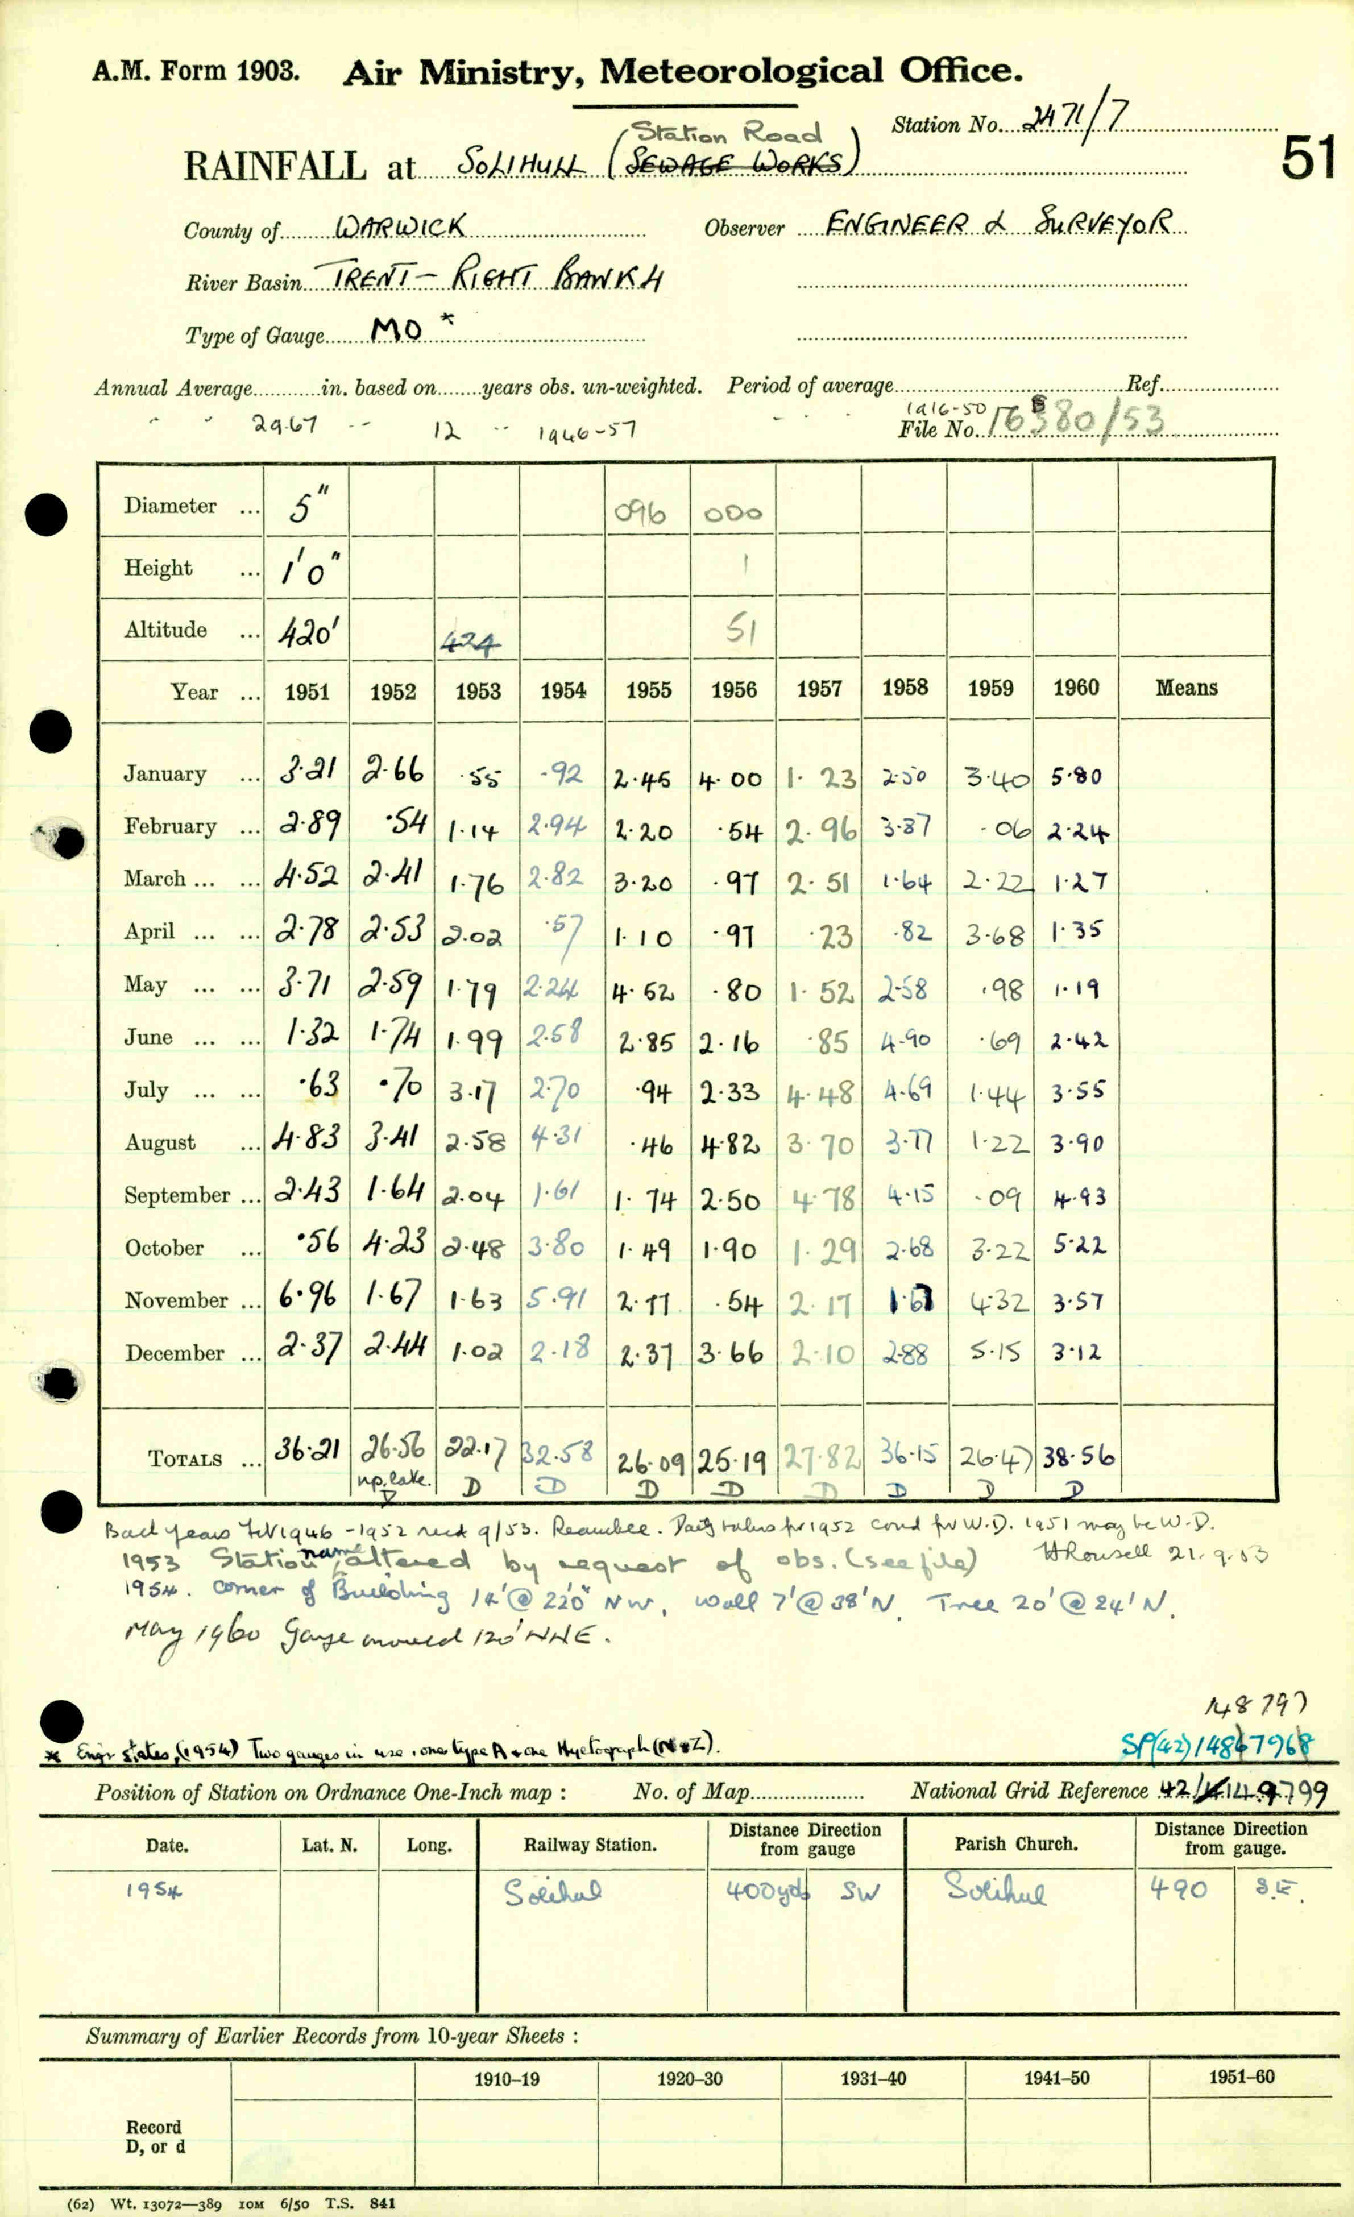 A.M. Form 1903. Air Ministry, Meteorological Office.
Station No. 2471/7
51
Station Road
RAINFALL at SOLIHULL (SEWAGE WORKS)
County of WARWICK Observer ENGINEER & SURVEYOR
River Basin TRENT – RIGHT BANK 4
Type of Gauge MO *
Annual Average in. based on years obs. un-weighted. Period of average Ref.
" " 29.67 " " 12 " " 1946-57 1916-50 File No. 380/53
Diameter ... 5" 096 000
Height ... 1'0" 1
Altitude ... 420' 424 51
Year ... 1951 1952 1953 1954 1955 1956 1957 1958 1959 1960 Means
January ... 3.21 2.66 .55 .92 2.45 4.00 1.23 2.50 3.40 5.80
February ... 2.89 .54 1.14 2.94 2.20 .54 2.96 3.37 .06 2.24
March ... ... 4.52 2.41 1.76 2.82 3.20 .97 2.51 1.64 2.22 1.27
April ... ... 2.78 2.53 2.02 .57 1.10 .97 .23 .82 3.68 1.35
May ... ... 3.71 2.59 1.79 2.24 4.52 .80 1.52 2.58 .98 1.19
June ... ... 1.32 1.74 1.99 2.58 2.85 2.16 .85 4.90 .69 2.42
July ... ... .63 .70 3.17 2.70 .94 2.33 4.48 4.69 1.44 3.55
August ... 4.83 3.41 2.58 4.31 .46 4.82 3.70 3.77 1.22 3.90
September ... 2.43 1.64 2.04 1.61 1.74 2.50 4.78 4.15 .09 4.93
October ... .56 4.23 2.48 3.80 1.49 1.90 1.29 2.68 3.22 5.22
November ... 6.96 1.67 1.63 5.91 2.77 .54 2.17 1.67 4.32 3.57
December ... 2.37 2.44 1.02 2.18 2.37 3.66 2.10 2.88 5.15 3.12
TOTALS ... 36.21 26.56 22.17 32.58 26.09 25.19 27.82 36.15 26.47 38.56
D D D D D D D D D
Back years 1946-1952 recd 9/53. Daily values for 1952 for W.D. 1951 may be W.D.
1953 Station name altered by request of obs. (see file) Rowsell 21.9.53
1954. Corner of Building 14'@ 22'0" NW, Wall 7'@ 38'N. Tree 20'@ 24'N.
May 1960 Gauge moved 120' NNE.
148797
* Engr states, (1954) Two gauges in use, one type A & one Hyetograph (N & Z).
SP(42)
Position of Station on Ordnance One-Inch map : No. of Map National Grid Reference 42/149799
Date. Lat. N. Long. Railway Station. Distance Direction from gauge Parish Church. Distance Direction from gauge.
1954 Solihull 400yds SW Solihull 490 S.E.
Summary of Earlier Records from 10-year Sheets :
1910–19 1920–30 1931–40 1941–50 1951–60
Record
D, or d
(62) Wt. 13072—389 10M 6/50 T.S. 841